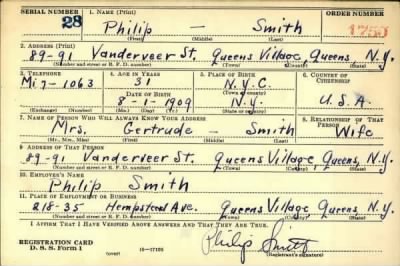 SERIAL NUMBER 1. NAME (Print) ORDER NUMBER
28 Philip — Smith
(First) (Middle) (Last)
2. ADDRESS (Print)
89-91 Vanderveer St. Queens Village, Queens, N.Y.
(Number and street or R. F. D. number) (Town) (County) (State)
3. TELEPHONE 4. AGE IN YEARS 5. PLACE OF BIRTH 6. COUNTRY OF CITIZENSHIP
31 N.Y.C.
(Town or county)
DATE OF BIRTH
8-1-1909 N.Y. U.S.A.
(Exchange) (Number) (Mo.) (Day) (Yr.) (State or country)
7. NAME OF PERSON WHO WILL ALWAYS KNOW YOUR ADDRESS 8. RELATIONSHIP OF THAT PERSON
Mrs. Gertrude — Smith Wife
(Mr., Mrs., Miss) (First) (Middle) (Last)
9. ADDRESS OF THAT PERSON
89-91 Vanderveer St. Queens Village, Queens, N.Y.
(Number and street or R. F. D. number) (Town) (County) (State)
10. EMPLOYER'S NAME
Philip Smith
11. PLACE OF EMPLOYMENT OR BUSINESS
218-35 Hempstead Ave. Queens Village Queens, N.Y.
(Number and street or R. F. D. number) (Town) (County) (State)
I AFFIRM THAT I HAVE VERIFIED ABOVE ANSWERS AND THAT THEY ARE TRUE.
REGISTRATION CARD
D. S. S. Form 1 (over) 16-17105 Philip Smith
(Registrant's signature)